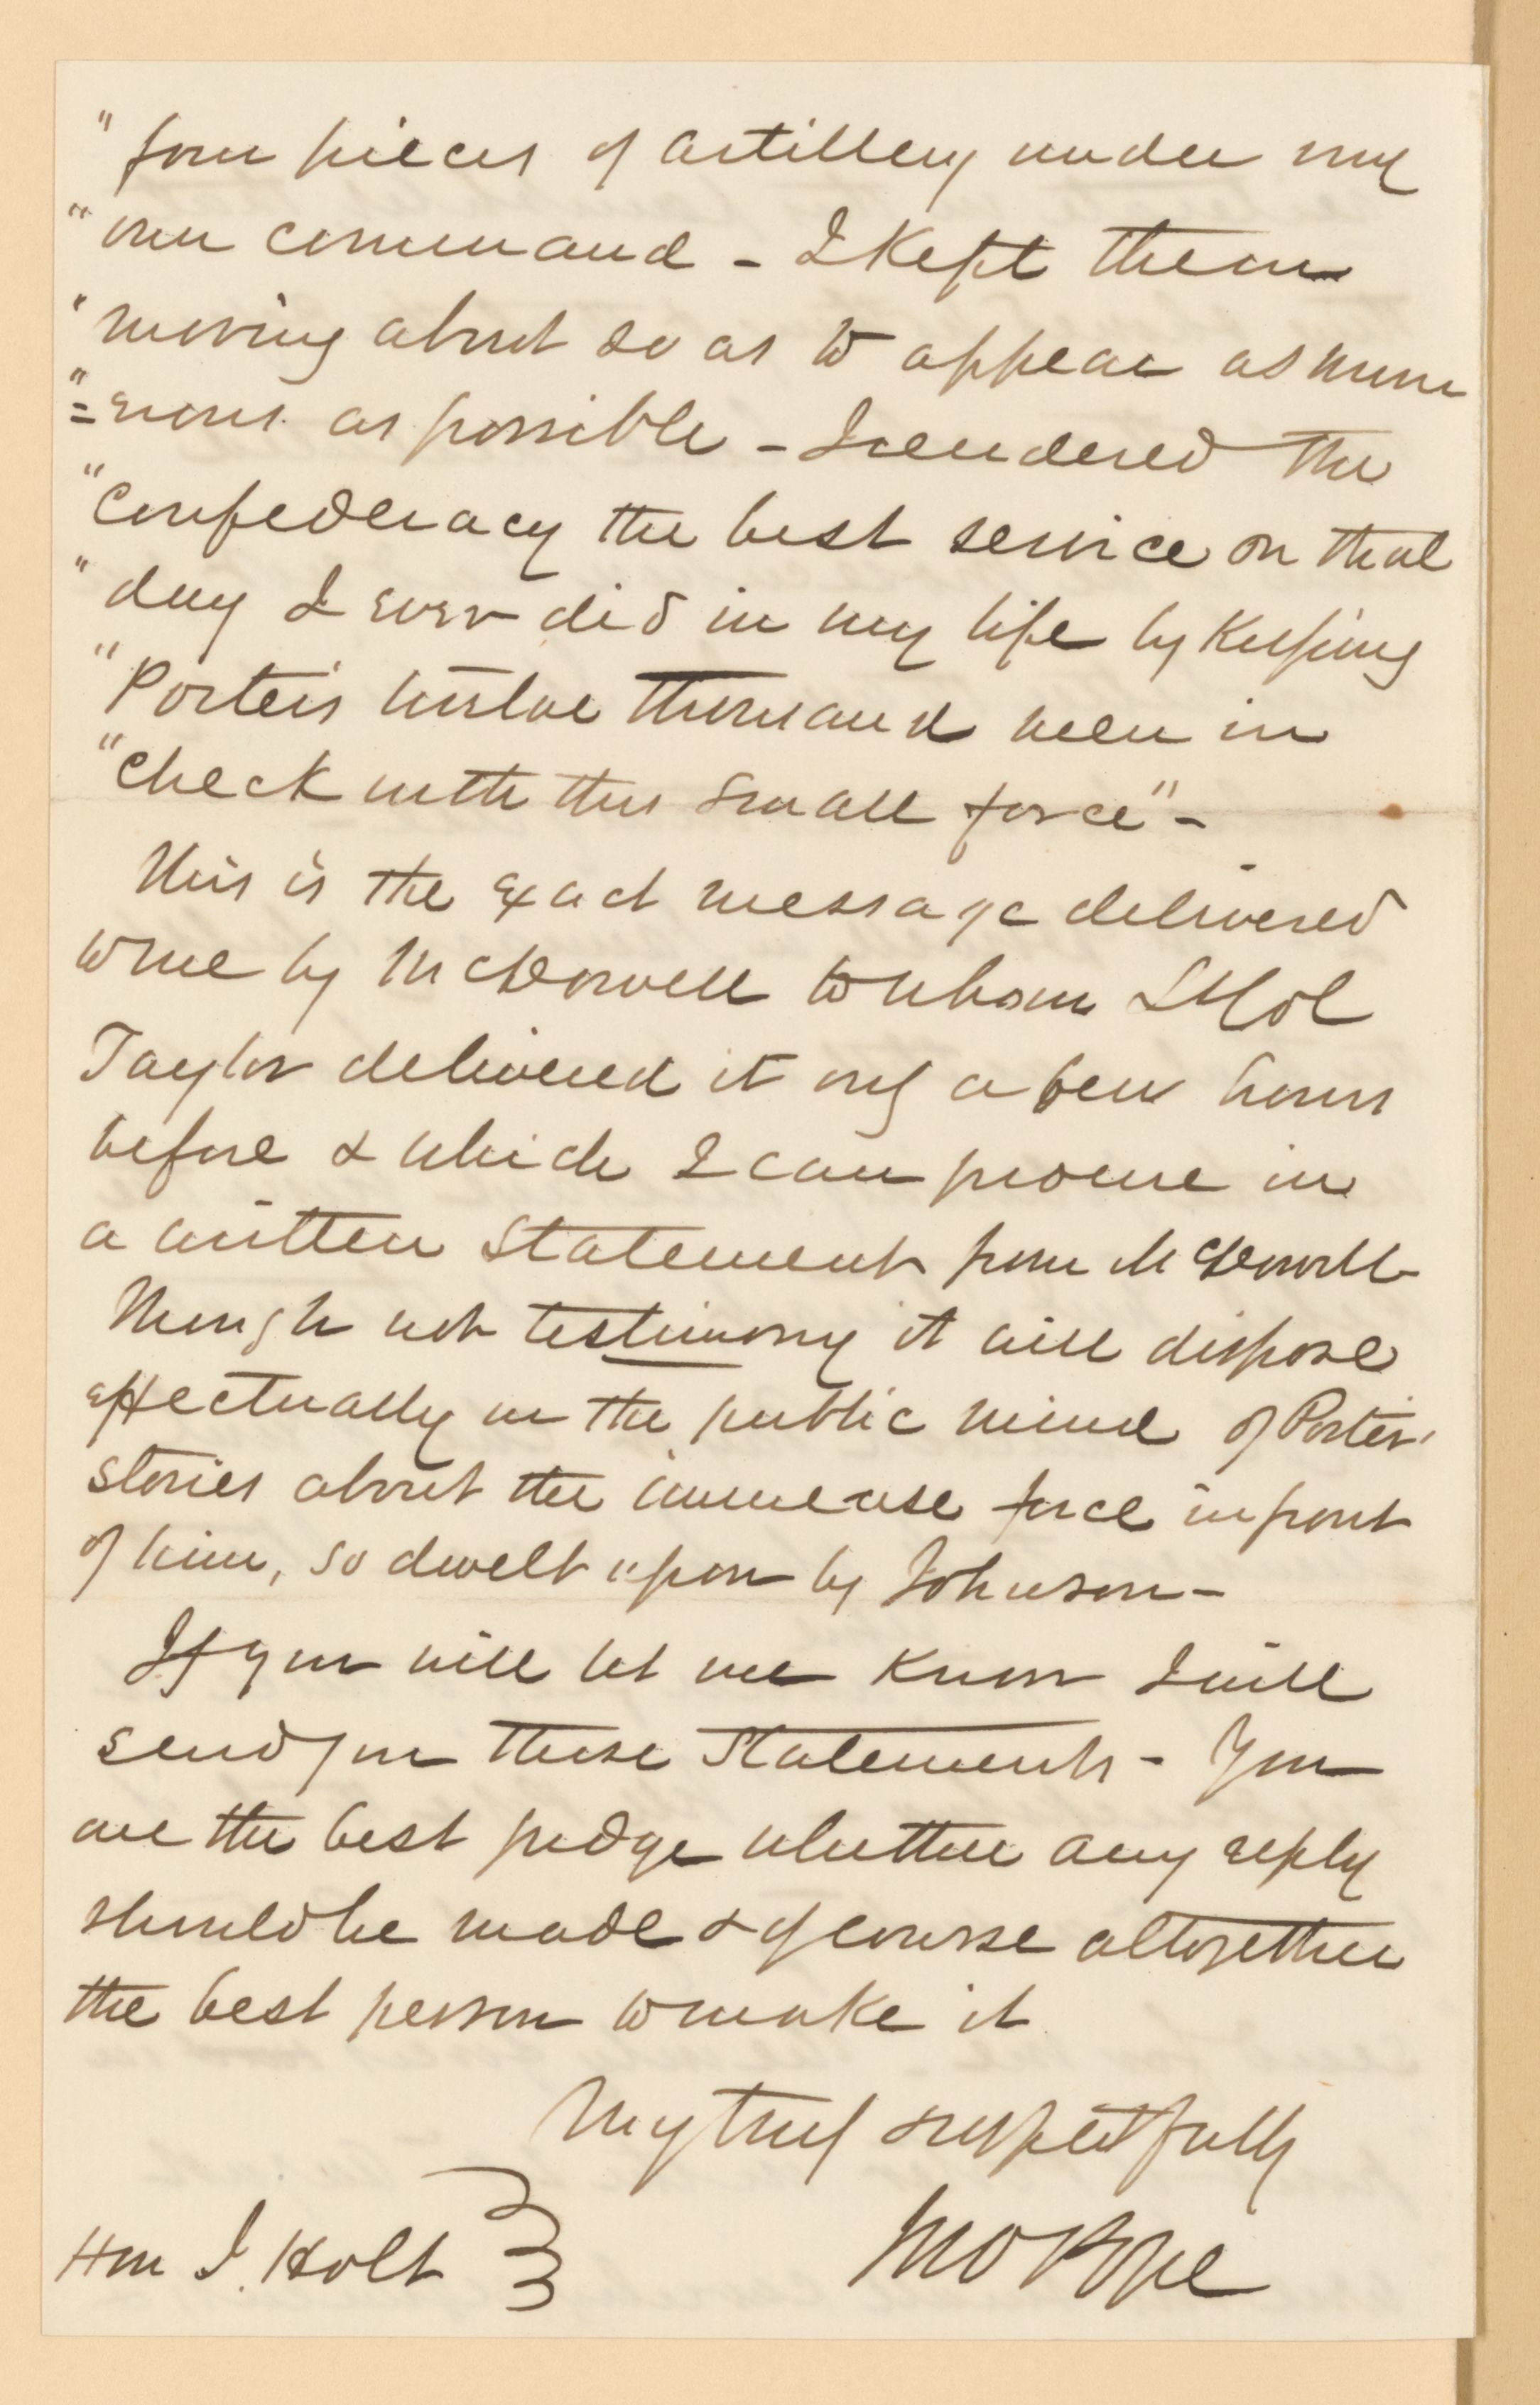 " four pieces of artillery under my
" own command - I kept them
" moving about so as to appear as num
"= erous as possible - I rendered the
" Confederacy the best service on that
" day I ever did in my life by Keeping
" Porter's twelve thousand men in
" check with this small force" -
This is the exact message delivered
to me by McDowell to whom Lt Col
Taylor delivered it only a few hours
before & which I can procure in
a written Statement from McDowell
Though not testimony it will dispose
effectually in the public mind of Porter's
stories about the immense force in front
of him, so dwelt upon by Johnson -
If you will let me Know I will
send you these Statements - You
are the best judge whether any reply
should be made & of course altogether
the best person to make it
Very truly & respectfully
Jno Pope
Hon J. Holt